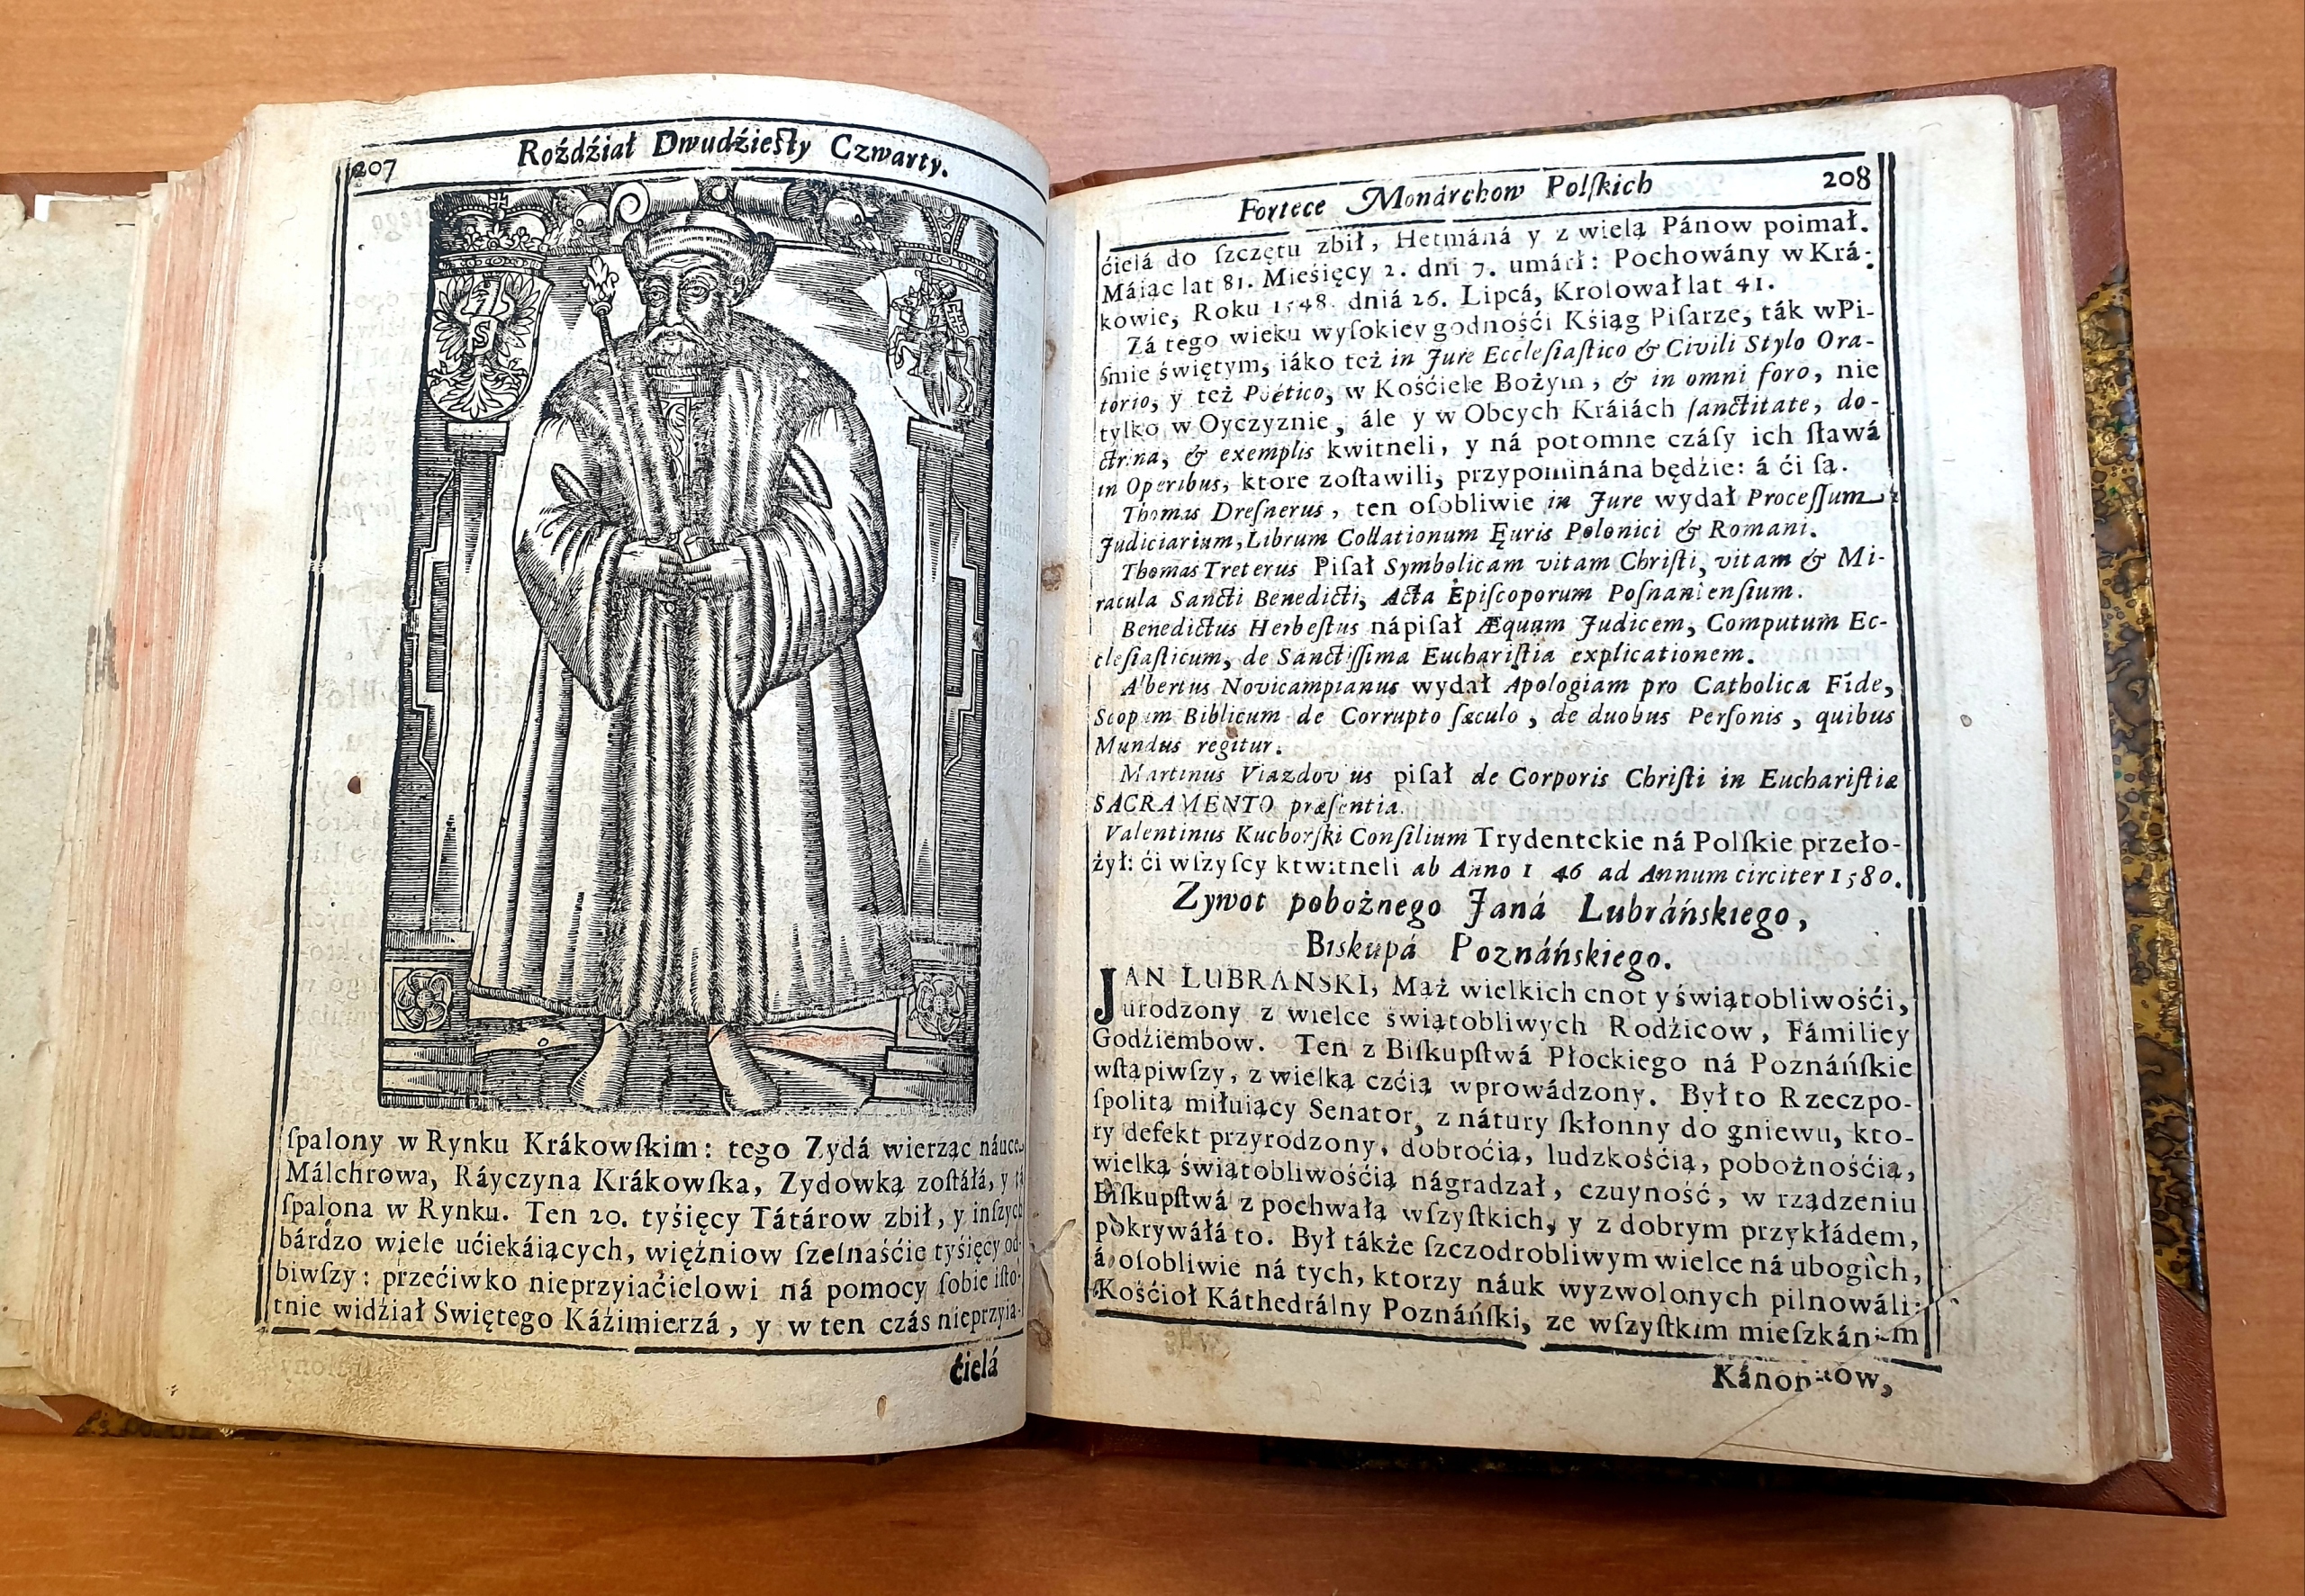 207
Roźdźiał Dwudźiesty Czwarty.
spalony w Rynku Krákowſkim: tego Zydá wierząc náuce
Málchrowa, Ráyczyna Krákowſka, Zydowką zoſtáłá, y
ſpalona w Rynku. Ten 20. tyśięcy Tátárow zbił, y inſzych
bárdzo wiele ućiekáiących, więźniow ſzeſnaśćie tyśięcy od-
biwſzy: przećiwko nieprzyiaćielowi ná pomocy ſobie iſto-
tnie widźiał Swiętego Káźimierzá, y w ten czás nieprzyia-
ćielá
Fortece Monárchow Polſkich
208
ćielá do ſzczętu zbił, Hetmáná y z wielą Pánow poimał.
Máiąc lat 81. Mieśięcy 2. dni 7. umárł: Pochowány w Krá-
kowie, Roku 1548. dniá 26. Lipcá, Krolował lat 41.
Zá tego wieku wyſokiey godnośći Kśiąg Piſarze, ták w Pi-
śmie świętym, iáko też in Jure Eccleſiaſtico & Civili Stylo Ora-
torio, y też Poëtico, w Kośćiele Bożym, & in omni foro, nie
tylko w Oyczyznie, ále y w Obcych Kráiách ſanctitate, do-
ctrina, & exemplis kwitneli, y ná potomne czáſy ich ſławá
in Operibus, ktore zoſtawili, przypominána będzie: á ći ſą.
Thomas Dreſnerus, ten oſobliwie in Jure wydał Proceſſum
Judiciarium, Librum Collationum Ęuris Polonici & Romani.
Thomas Treterus Piſał Symbolicam vitam Chriſti, vitam & Mi-
racula Sancti Benedicti, Acta Epiſcoporum Poſnanienſium.
Benedictus Herbeſtus nápiſał Æquum Judicem, Computum Ec-
cleſiaſticum, de Sanctiſſima Euchariſtia explicationem.
Albertus Novicampianus wydał Apologiam pro Catholica Fide,
Scopum Biblicum de Corrupto ſæculo, de duobus Perſonis, quibus
Mundus regitur.
Martinus piſał de Corporis Chriſti in Euchariſtiæ
SACRAMENTO præſentia.
Valentinus Kucborſki Conſilium Trydentckie ná Polſkie przeło-
żył: ći wſzyſcy ktwitneli ab Anno 1 46 ad Annum circiter 1580.
Zywot pobożnego Janá Lubráńskiego,
Biskupá Poznáńskiego.
JAN LUBRANSKI, Mąż wielkich cnot y świątobliwośći,
urodzony z wielce świątobliwych Rodźicow, Fámiliey
Godźiembow. Ten z Biſkupſtwá Płockiego ná Poznáńſkie
wſtąpiwſzy, z wielką czćią wprowádzony. Był to Rzeczpo-
ſpolitą miłuiący Senator, z nátury ſkłonny do gniewu, kto-
ry defekt przyrodzony, dobroćią, ludzkośćią, pobożnośćią,
wielką świątobliwośćią nágradzał, czuyność, w rządzeniu
Biſkupſtwá z pochwałą wſzyſtkich, y z dobrym przykłádem,
pokrywáłá to. Był tákże ſzczodrobliwym wielce ná ubogich,
á oſobliwie ná tych, ktorzy náuk wyzwolonych pilnowáli:
Kośćioł Káthedrálny Poznáńſki, ze wſzyſtkim mieſzkániem
Kánonikow,